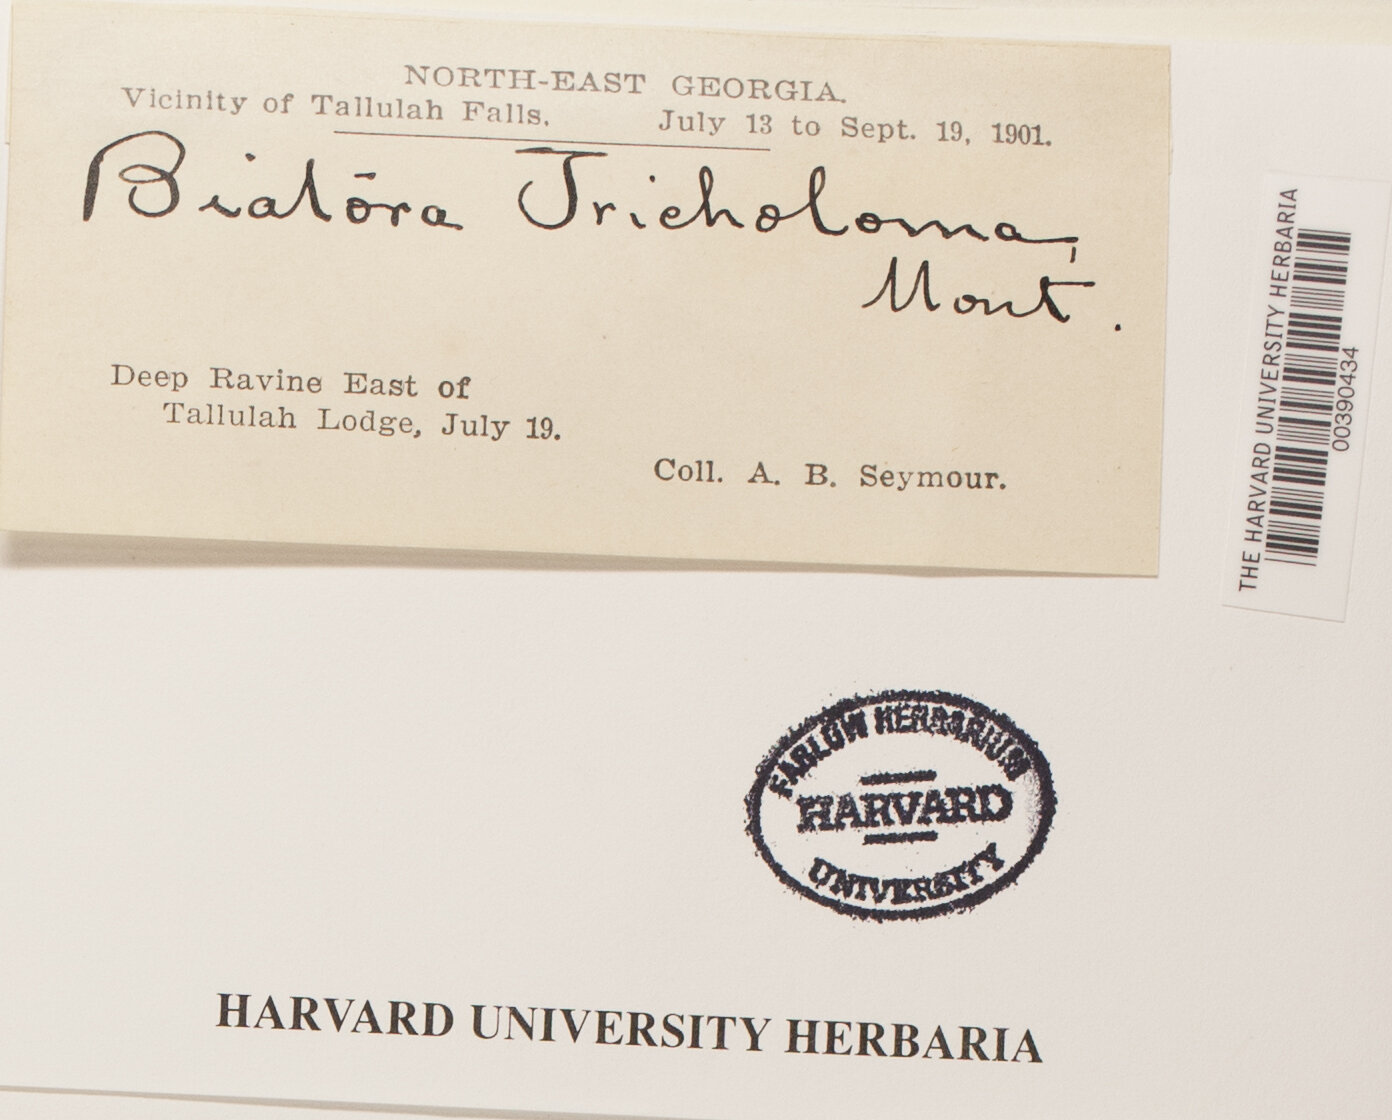 NORTH-EAST GEORGIA.
Vicinity of Tallulah Falls. July 13 to Sept. 19, 1901.
Biatōra Tricholoma,
Mont.
Deep Ravine East of
Tallulah Lodge, July 19.
Coll. A. B. Seymour.
THE HARVARD UNIVERSITY HERBARIA
00390434
FARLOW HERBARIUM
HARVARD
UNIVERSITY
HARVARD UNIVERSITY HERBARIA